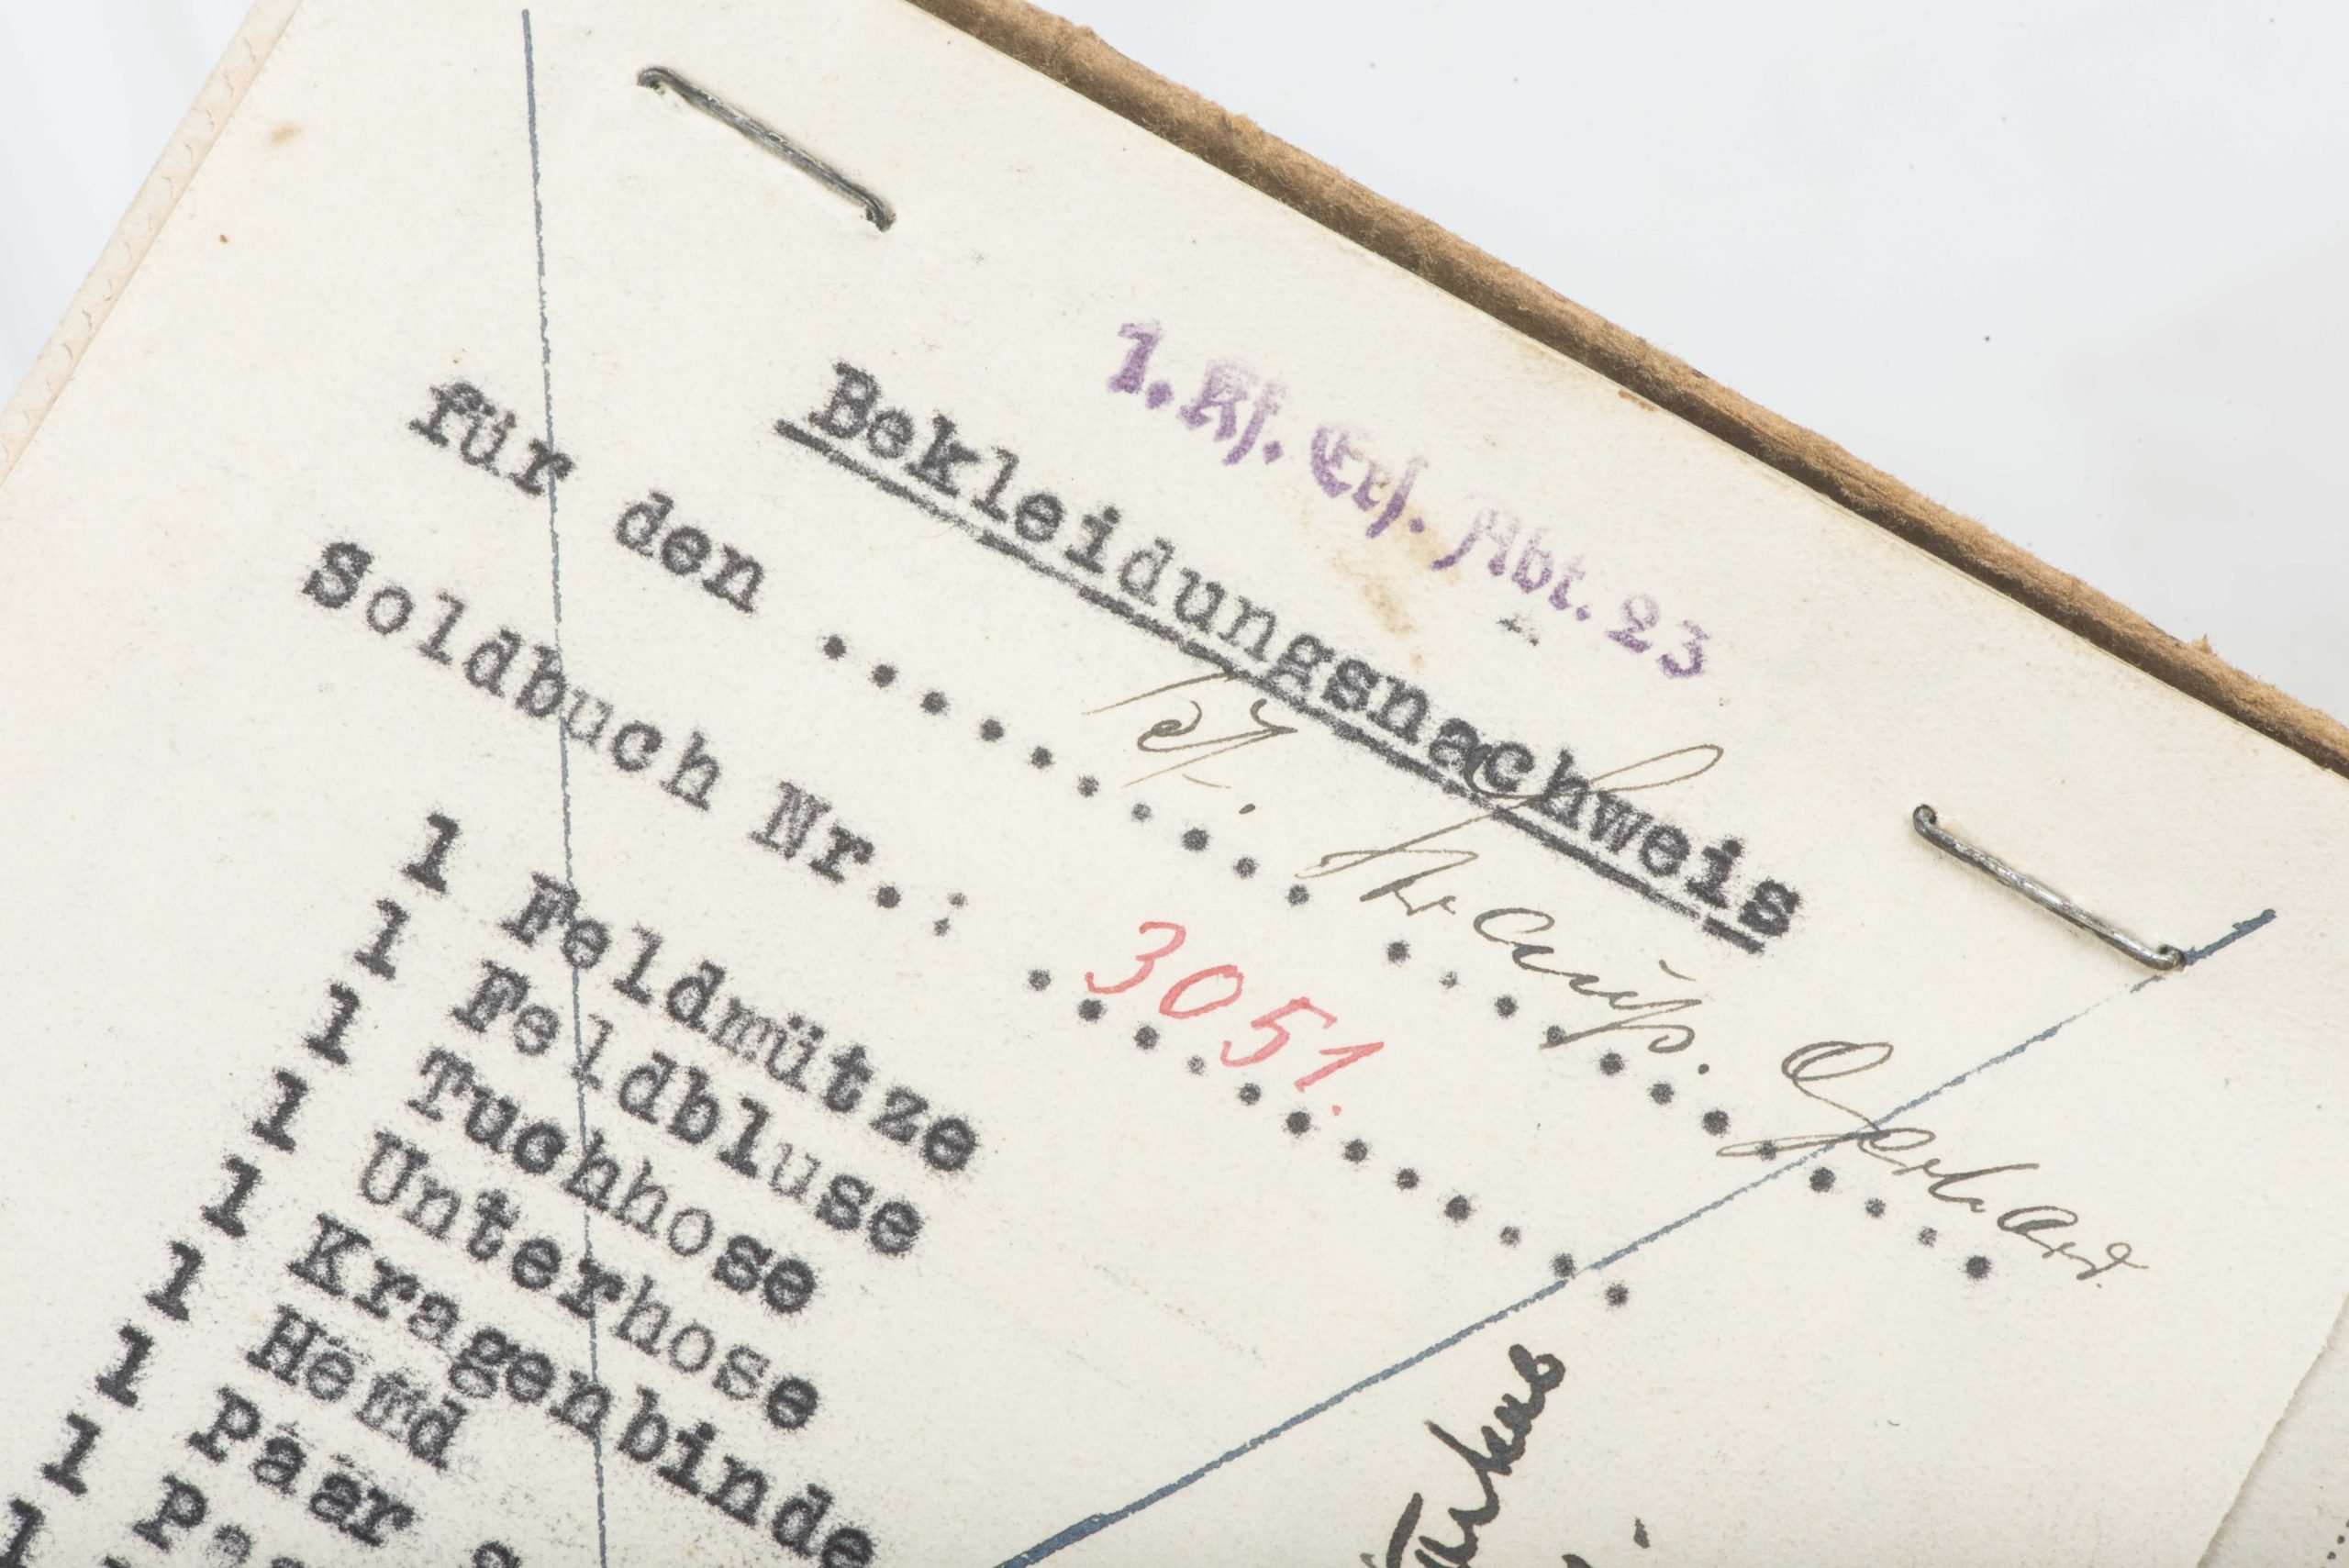 1. Kf. Ers. Abt. 23
Bekleidungsnachweis
für den .......... Gerhard.
Soldbuch Nr.: 3051.
1 Feldmütze
1 Feldbluse
1 Tuchhose
1 Unterhose
1 Kragenbinde
1 Hemd
1 Paar
1
1